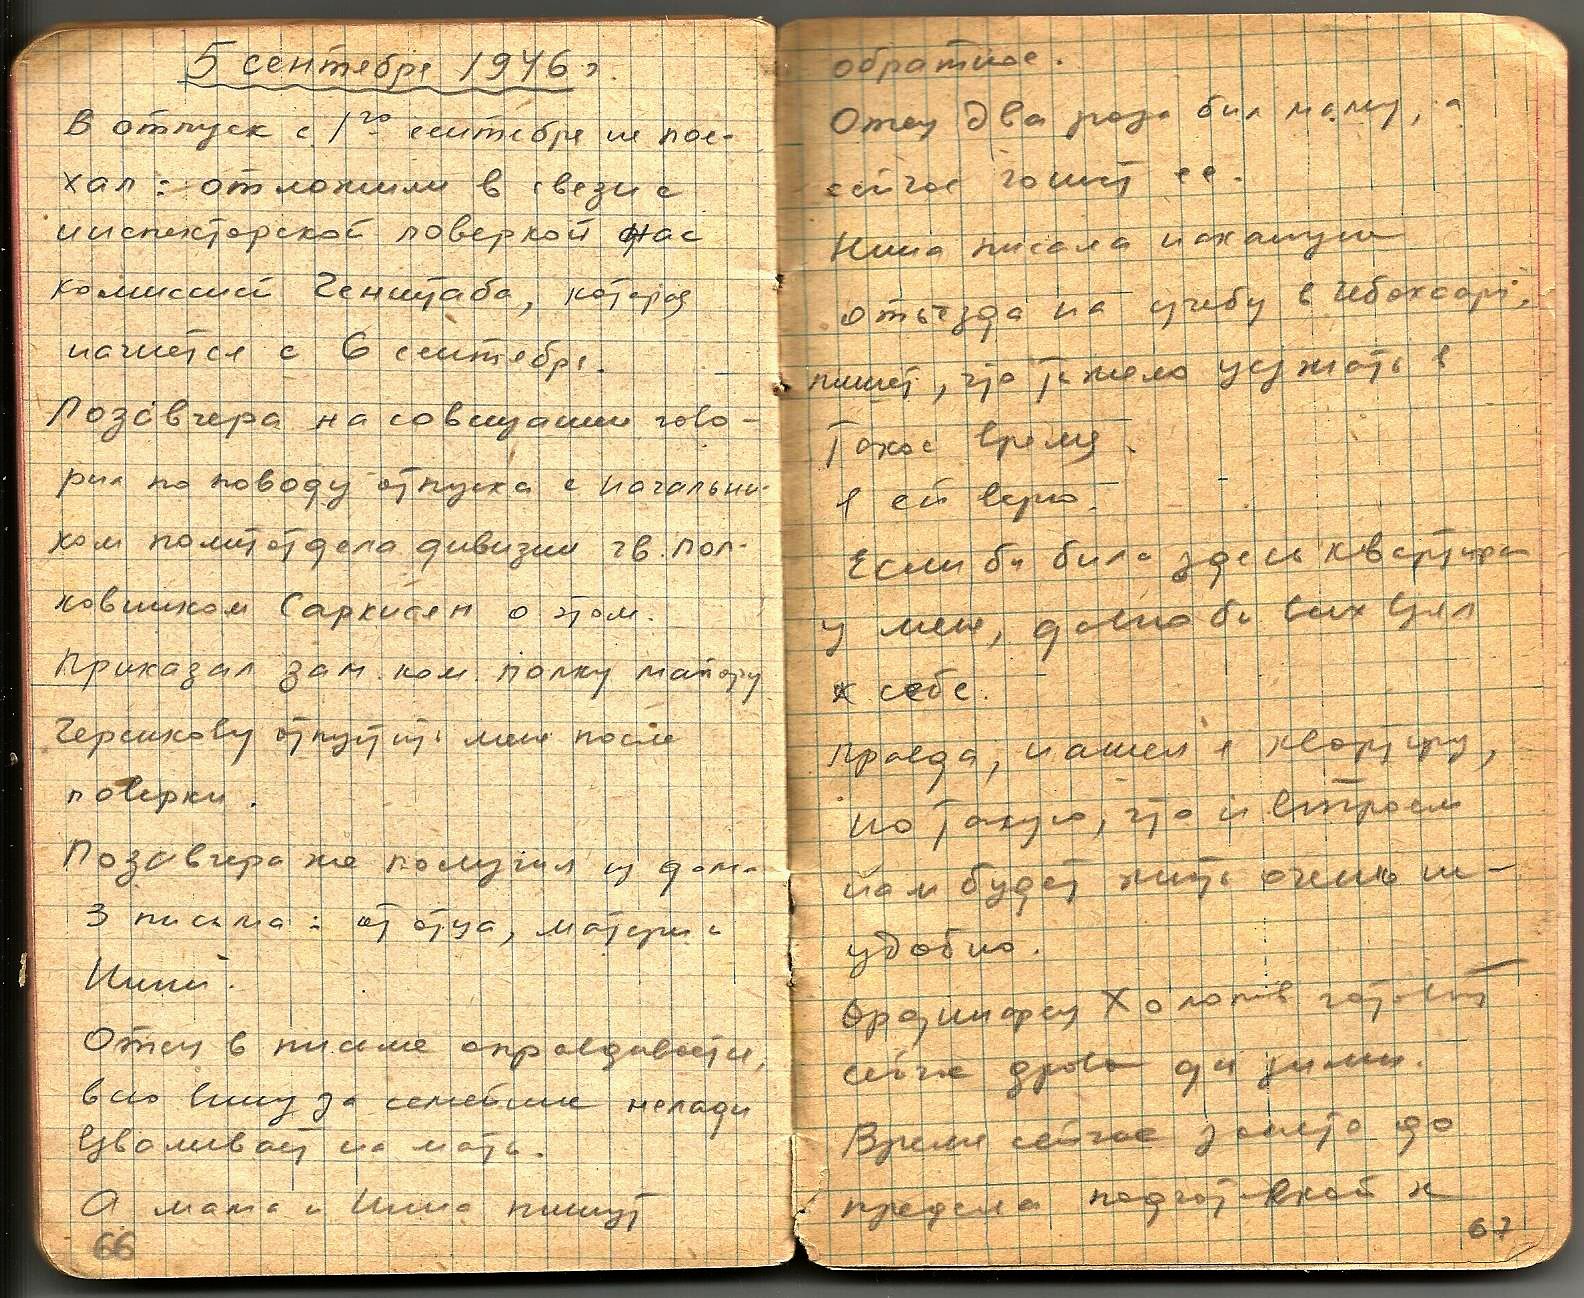 5 сентября 1946 г.
В отпуск с 1го сентября не пое-
хал: отложили в связи с
инспекторской поверкой нас
комиссией Генштаба, которая
начнётся с 6 сентября.
Позавчера на совещании гово-
рил по поводу отпуска с начальни-
ком политотдела дивизии гв. пол-
ковником Саркисян о этом.
Приказал зам. ком. полку майору
отпустить меня после
поверки.
Позавчера же получил из дома
3 письма: от отца, матери и
Нины.
Отец в письме оправдывается,
всю вину за семейные нелады
взваливает на мать.
А мама и Нина пишут
66
обратное.
Отец два раза бил маму, а
сейчас гонит ее.
Нина писала накануне
отъезда на учебу в Чебоксары,
пишет, что тяжело уезжать в
такое время.
Я ей верю.
Если бы была здесь квартира
у меня, давно бы взял
к себе.
Правда, нашел я квартиру,
но такую, что и втроем
нам будет жить очень не-
удобно.
Ординарец Холопов готовит
сейчас дрова для зимы.
Время сейчас занято до
предела подготовкой к
67